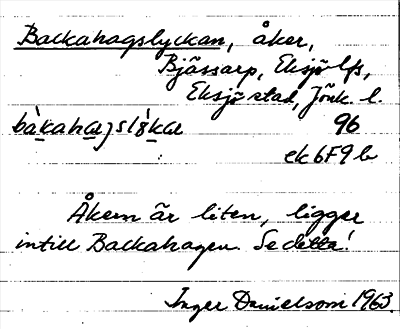 Backahagslyckan, åker,
Bjässarp, Eksjö lfs,
Eksjö stad, Jönk. l.
96
ek 6F9b
Åkern är liten, ligger
intill Backahagen. Se detta!
Inger Danielsson 1963.